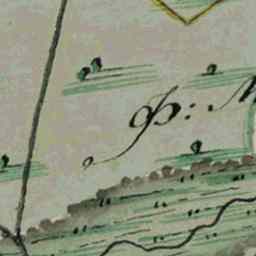 Ф: М